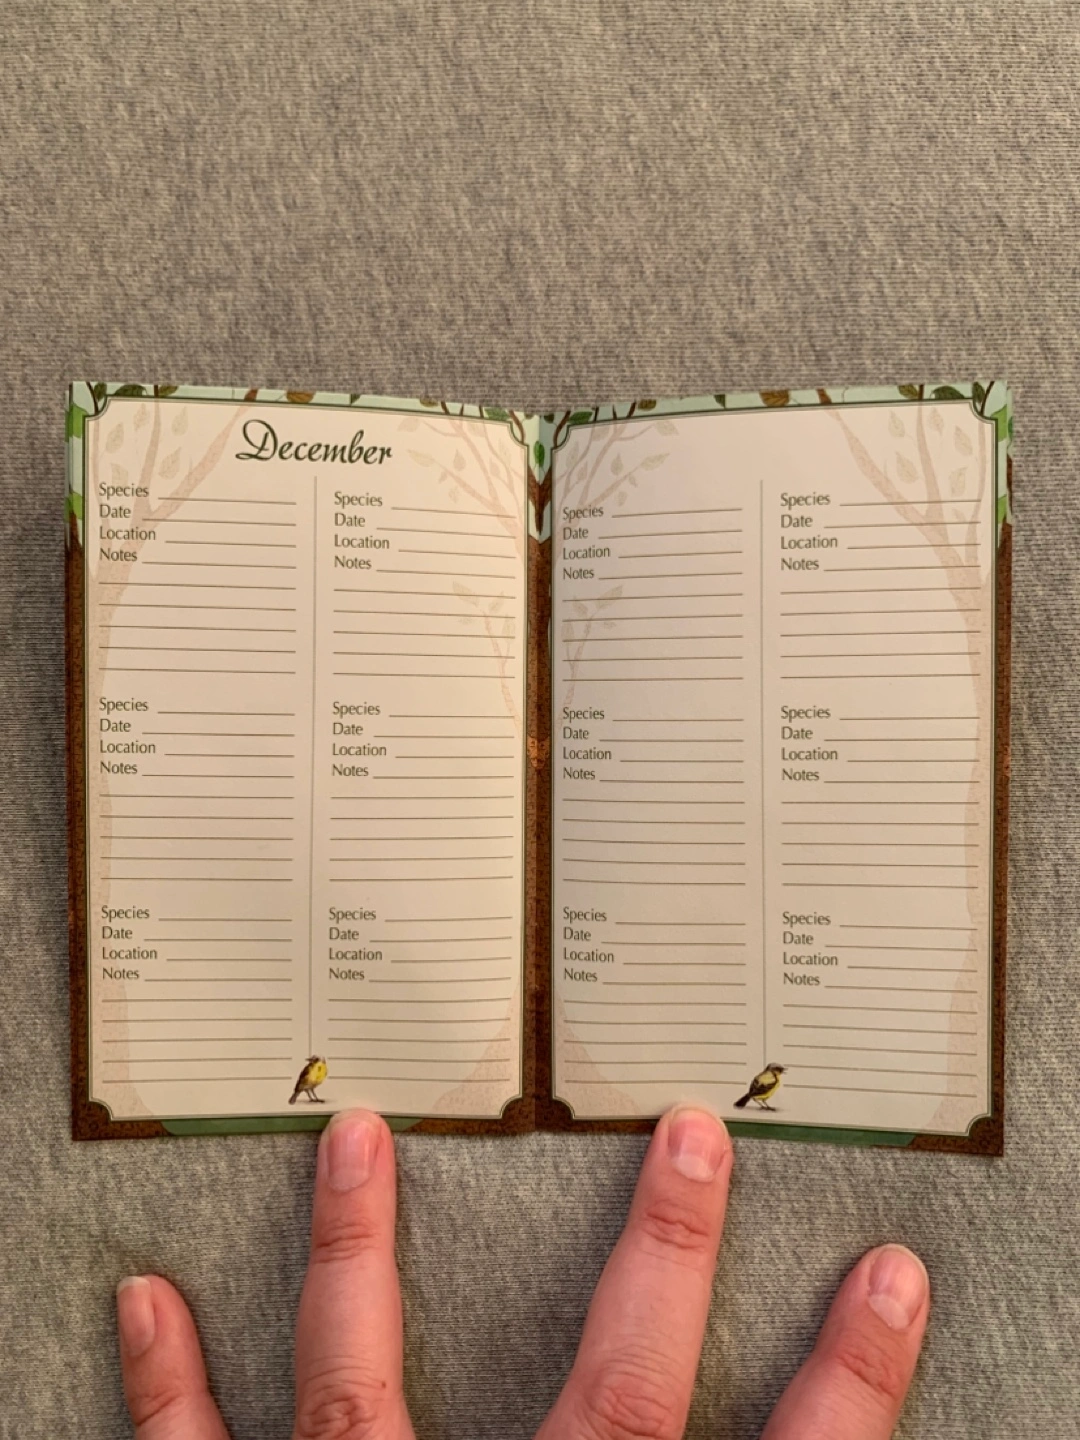 December
Species
Date
Location
Notes
Species
Date
Location
Notes
Species
Date
Location
Notes
Species
Date
Location
Notes
Species
Date
Location
Notes
Species
Date
Location
Notes
Species
Date
Location
Notes
Species
Date
Location
Notes
Species
Date
Location
Notes
Species
Date
Location
Notes
Species
Date
Location
Notes
Species
Date
Location
Notes